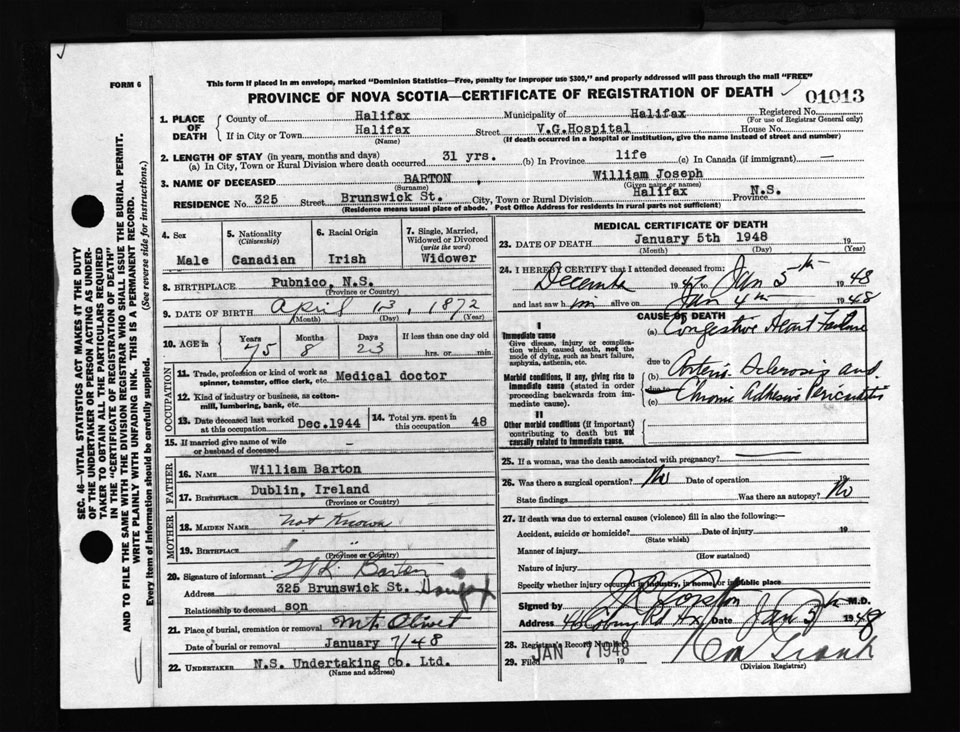 FORM 6
This form if placed in an envelope, marked "Dominion Statistics—Free, penalty for improper use $300," and properly addressed will pass through the mail "FREE"
PROVINCE OF NOVA SCOTIA—CERTIFICATE OF REGISTRATION OF DEATH
01013
1. PLACE OF DEATH
County of Halifax Municipality of Halifax Registered No.
(For use of Registrar General only)
If in City or Town Halifax Street V.G.Hospital House No.
(Name) (If death occurred in a hospital or institution, give the name instead of street and number)
2. LENGTH OF STAY (in years, months and days)
(a) In City, Town or Rural Division where death occurred 31 yrs. (b) In Province life (c) In Canada (if immigrant) —
3. NAME OF DECEASED BARTON , William Joseph
(Surname) (Given name or names)
RESIDENCE No. 325 Street Brunswick St. City, Town or Rural Division Halifax Province N.S.
(Residence means usual place of abode. Post Office Address for residents in rural parts not sufficient)
4. Sex
Male
5. Nationality
(Citizenship)
Canadian
6. Racial Origin
Irish
7. Single, Married, Widowed or Divorced
(write the word)
Widower
8. BIRTHPLACE Pubnico, N.S.
(Province or Country)
9. DATE OF BIRTH April 13, 1872
(Month) (Day) (Year)
10. AGE in
Years Months Days If less than one day old
75 8 23 hrs. or min.
OCCUPATION
11. Trade, profession or kind of work as
spinner, teamster, office clerk, etc. Medical doctor
12. Kind of industry or business, as cotton-
mill, lumbering, bank, etc.
13. Date deceased last worked
at this occupation Dec.1944
14. Total yrs. spent in
this occupation 48
15. If married give name of wife
or husband of deceased —
FATHER
16. NAME William Barton
17. BIRTHPLACE Dublin, Ireland
(Province or Country)
MOTHER
18. MAIDEN NAME Not Known
19. BIRTHPLACE " "
(Province or Country)
20. Signature of informant Barton
Address 325 Brunswick St. Halifax
Relationship to deceased son
21. Place of burial, cremation or removal Mt. Olivet
Date of burial or removal January 7/48
22. UNDERTAKER N.S. Undertaking Co. Ltd.
(Name and address)
MEDICAL CERTIFICATE OF DEATH
23. DATE OF DEATH January 5th 1948 19
(Month) (Day) (Year)
24. I HEREBY CERTIFY that I attended deceased from:
December 1947 to Jan 5th 1948
and last saw him alive on Jan 4th 1948
CAUSE OF DEATH
I
Immediate cause
Give disease, injury or complica-
tion which caused death, not the
mode of dying, such as heart failure,
asphyxia, asthenia, etc.
(a) Congestive Heart Failure
due to
Morbid conditions, if any, giving rise to
immediate cause (stated in order
proceeding backwards from im-
mediate cause).
(b) Arterio Sclerosis and
due to
(c) Chronic Adhesive Pericarditis
II
Other morbid conditions (if important)
contributing to death but not
causally related to immediate cause.
25. If a woman, was the death associated with pregnancy? —
26. Was there a surgical operation? No Date of operation 19
State findings Was there an autopsy? No
27. If death was due to external causes (violence) fill in also the following:—
Accident, suicide or homicide? Date of injury 19
(State which)
Manner of injury
(How sustained)
Nature of injury
Specify whether injury occurred in industry, in home, or in public place
Signed by M.D.
Address Rd Hx Date Jan 1948
28. Registrar's Record Number
29. Filed JAN 7 1948 19
(Division Registrar)
SEC. 46—VITAL STATISTICS ACT MAKES IT THE DUTY
OF THE UNDERTAKER OR PERSON ACTING AS UNDER-
TAKER TO OBTAIN ALL THE PARTICULARS REQUIRED
IN THE "CERTIFICATE OF REGISTRATION OF DEATH"
AND TO FILE THE SAME WITH THE DIVISION REGISTRAR WHO SHALL ISSUE THE BURIAL PERMIT.
WRITE PLAINLY WITH UNFADING INK. THIS IS A PERMANENT RECORD.
Every item of Information should be carefully supplied. (See reverse side for instructions.)